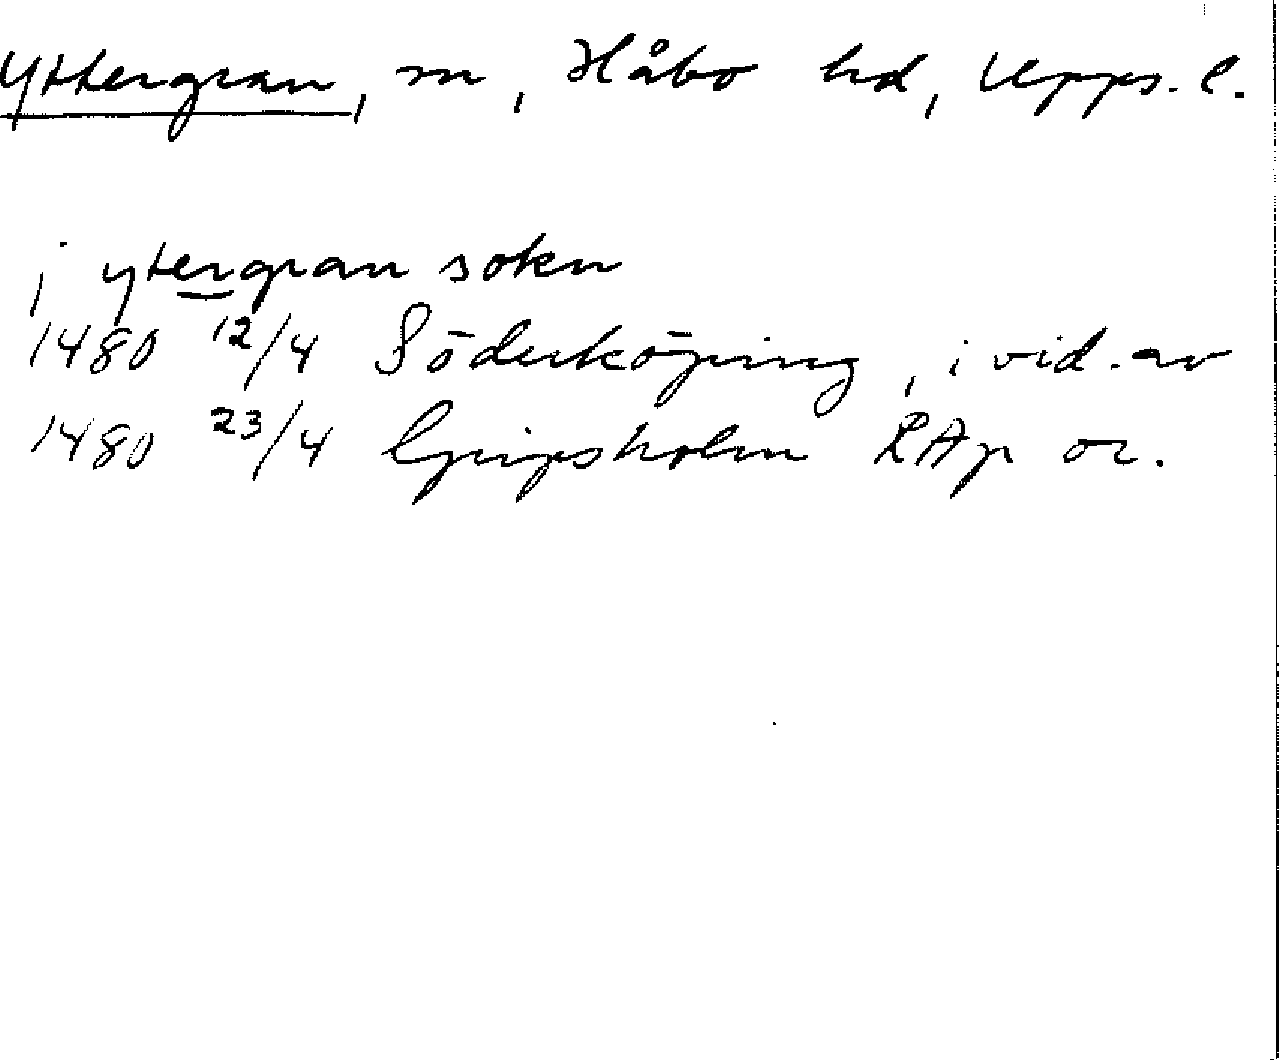 Yttergran, sn, Håbo hd, Upps. l.
j ytergran sokn
1480 12/4 Söderköping, i vid. av
1480 23/4 Gripsholm RAp or.